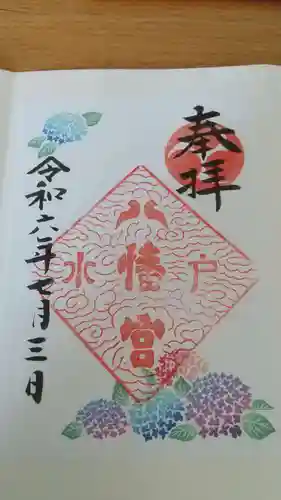 奉拝
八幡宮
水戸
令和六年七月三日